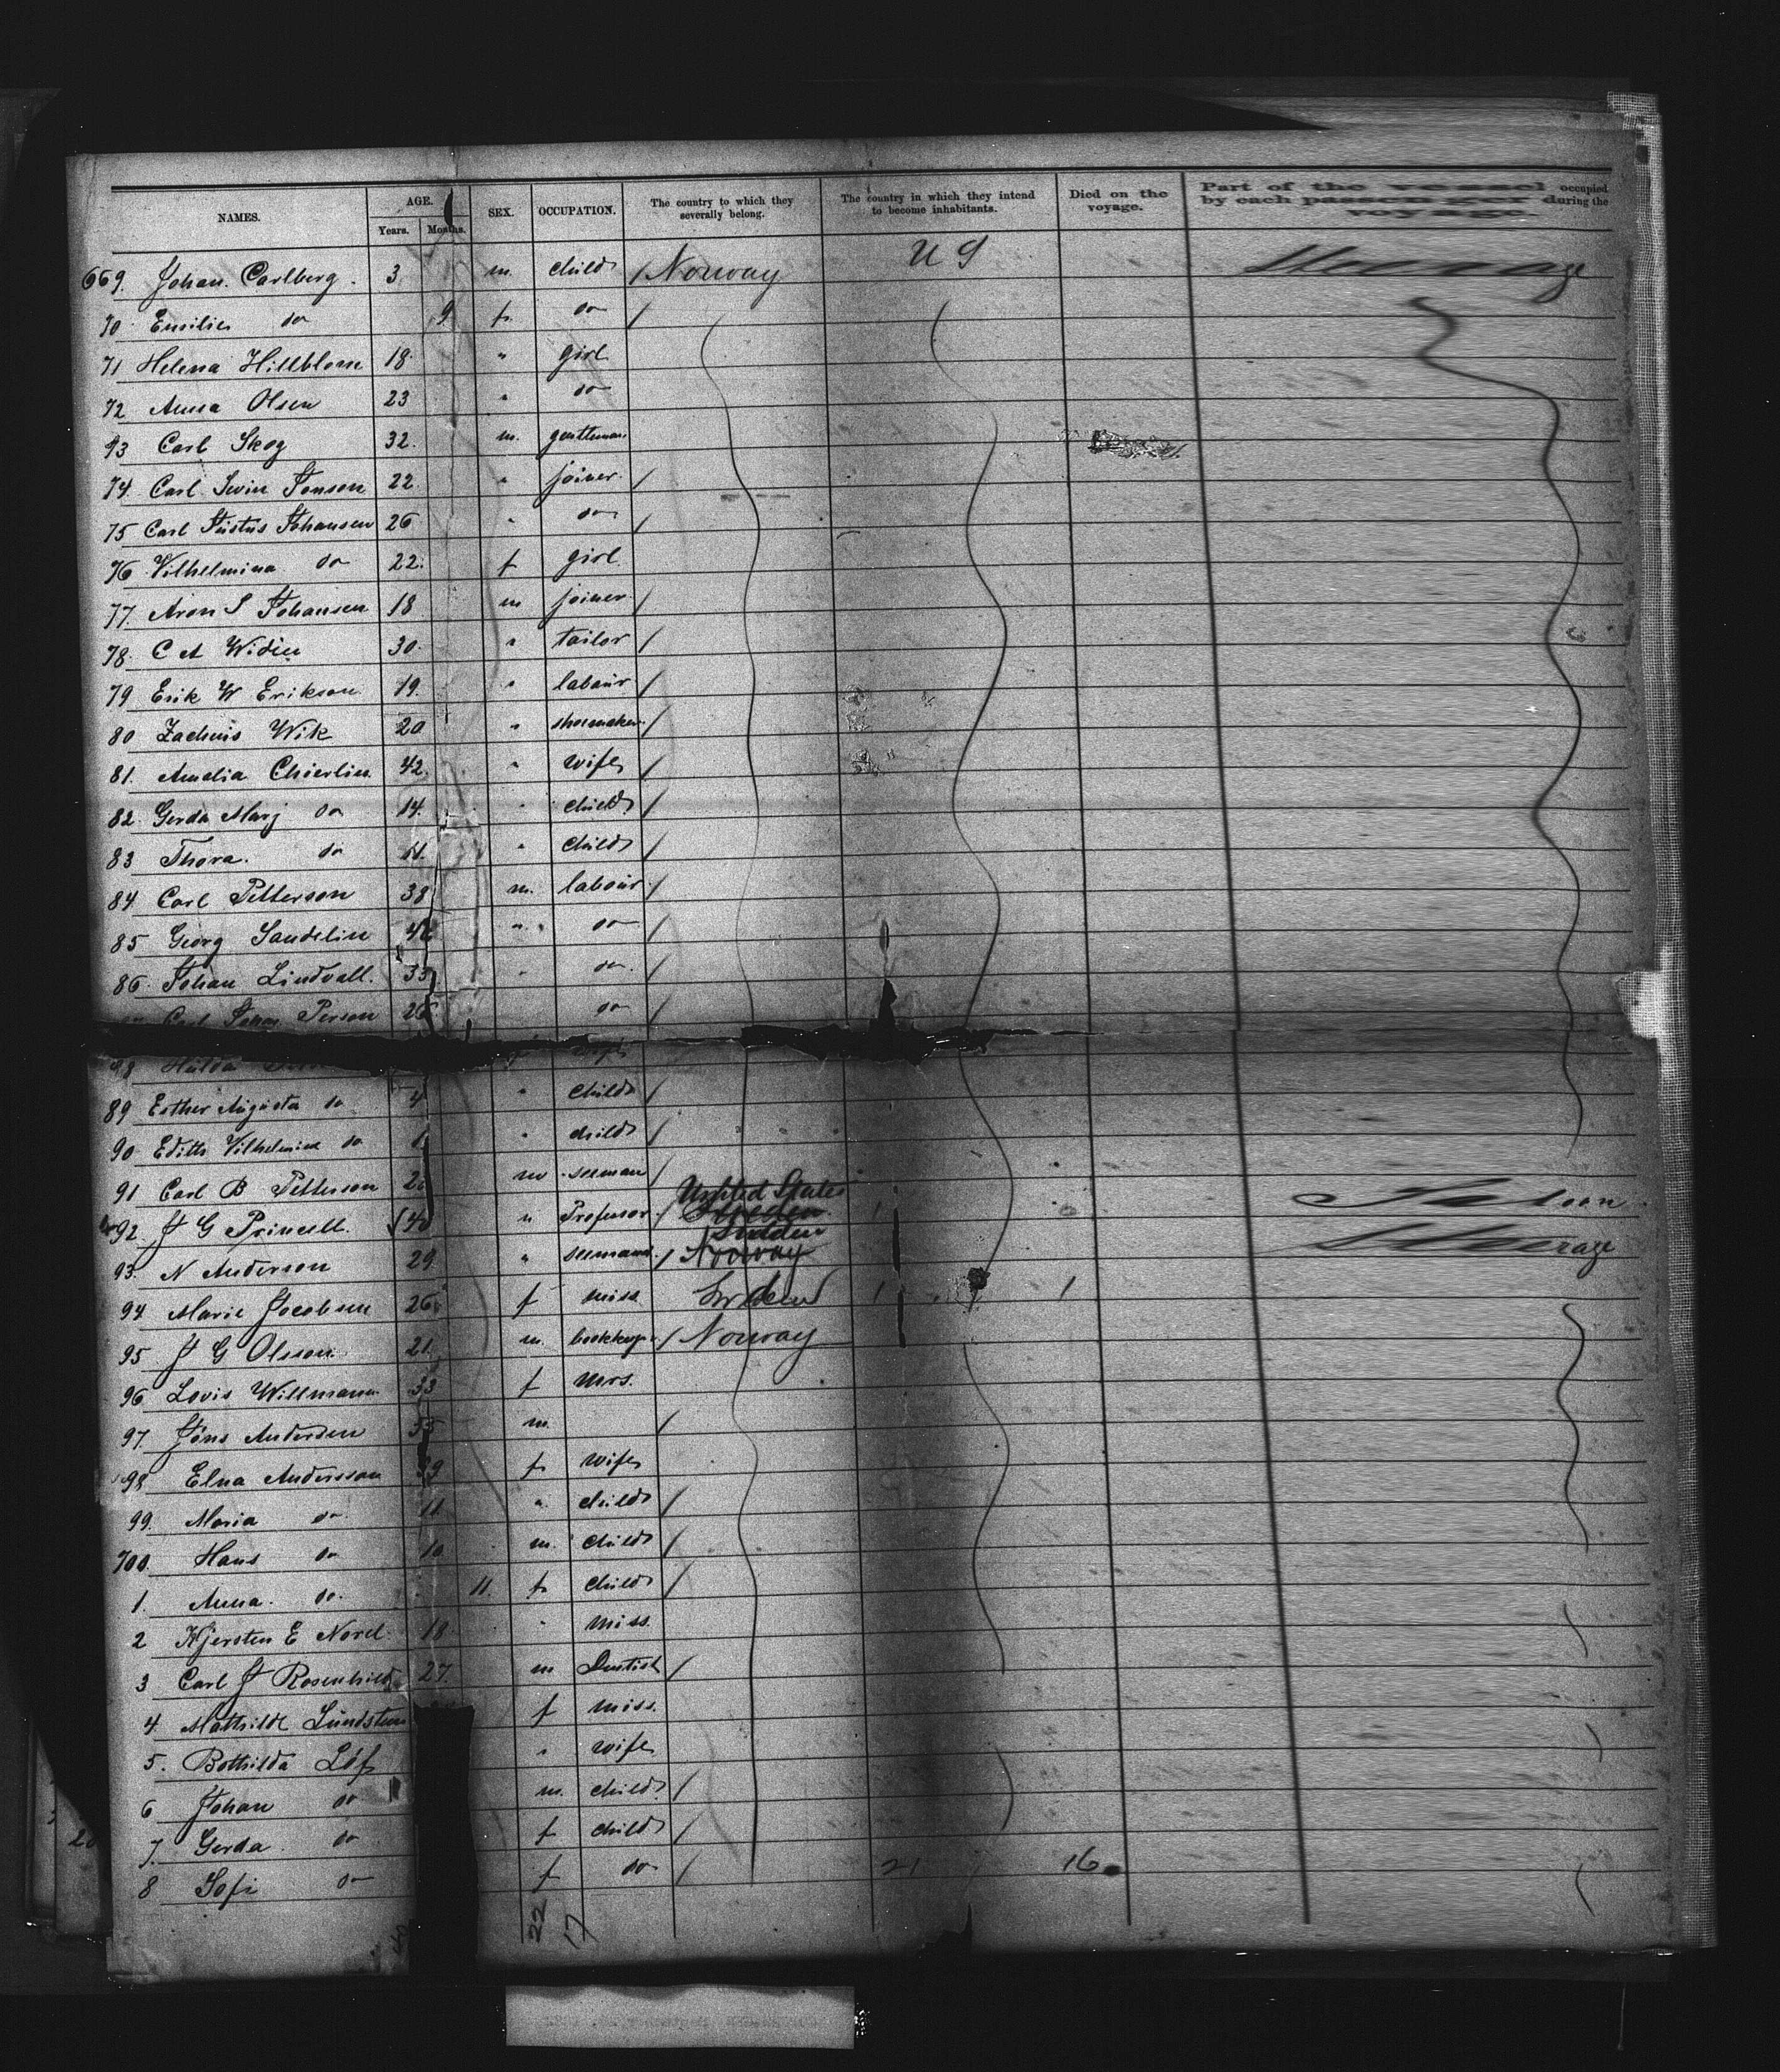 NAMES. AGE. Years. Months. SEX. OCCUPATION. The country to which they severally belong. The country in which they intend to become inhabitants. Died on the voyage. Part of the vessel occupied by each passenger during the voyage.
669. Johan Carlberg. 3 m. child / Norway U S Steerage
70 Emilie do 9 f. do /
71 Helena Hillblom 18 " girl
72 Anna Olsen 23 " do
73 Carl Skog 32. m. gentleman
74. Carl Swin Jonson 22. " joiner. /
75 Carl Justus Johansen 26 " do /
76 Vilhelmina do 22. f girl
77. Aron S Johansen 18 m joiner /
78. C A Widin 30. " tailor /
79 Erik W Erikson 19. " labour /
80 Zacheus Wik 20 " shoemaker /
81. Amalia Chierlin 42. " wife /
82. Gerda Marj do 14. " child /
83 Thora. do 11. " child /
84. Carl Petterson 38 m. labour /
85 Georg Sandelin " do /
86. Johan Lindvall. 33 " do /
Carl Johan Person 26 do /
Hulda
89 Esther Augusta do 4 " child /
90 Edith Vilhelmina do " child /
91 Carl B Petterson m seeman / United States Saloon
92. J G Princell. 40 " Professor / Sweden Steerage
93. N Anderson 29 " seemann. / Norway
94 Marie Jacobsen 26 f miss Sweden / /
95 J G Olsson. 21. m. bookkeeper / Norway
96 Lovis Willmann 33 f mrs.
97. Jöns Andersen 35 m. /
98 Elna Andersson 39 f. wife
99. Maria do 11 " child /
700. Hans do 10 m. child /
1. Anna. do. 11. f. child /
2 Kjersten E Norel 18 " miss.
3 Carl J Rosenhild 27. m Dentist /
4. Mathilde Lundsten f miss.
5. Bothilda Löf " wife
6 Johan do m. child /
7. Gerda do f child /
8 Sofi do f do / 21 16
22
17